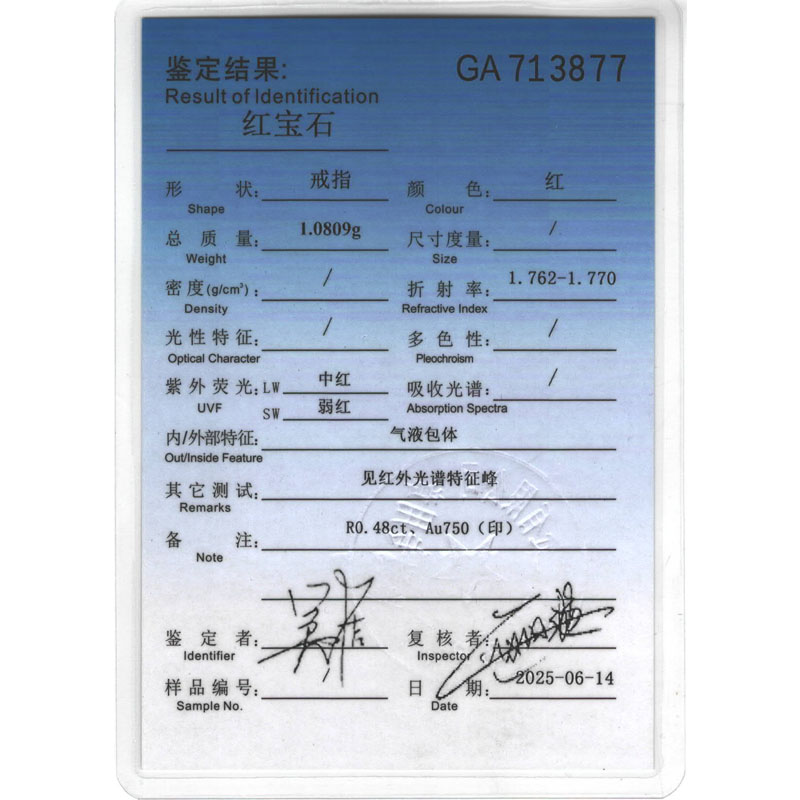 鉴定结果: GA 713877
Result of Identification
红宝石
形 状: 戒指 颜 色: 红
Shape Colour
总 质 量: 1.0809g 尺寸度量: /
Weight Size
密度(g/cm³): / 折 射 率: 1.762-1.770
Density Refractive Index
光性特征: / 多 色 性: /
Optical Character Pleochroism
紫外荧光: LW 中红 吸收光谱: /
UVF SW 弱红 Absorption Spectra
内/外部特征: 气液包体
Out/Inside Feature
其它测试: 见红外光谱特征峰
Remarks
备 注: R0.48ct、Au750(印)
Note
鉴 定 者: 复 核 者:
Identifier Inspector
样品编号: 日 期: 2025-06-14
Sample No. Date